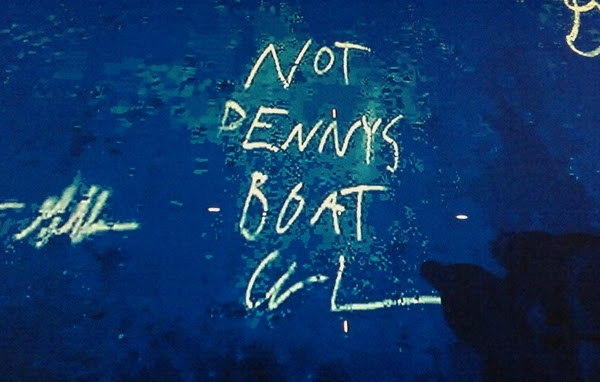 NOT
PENNYS
BOAT